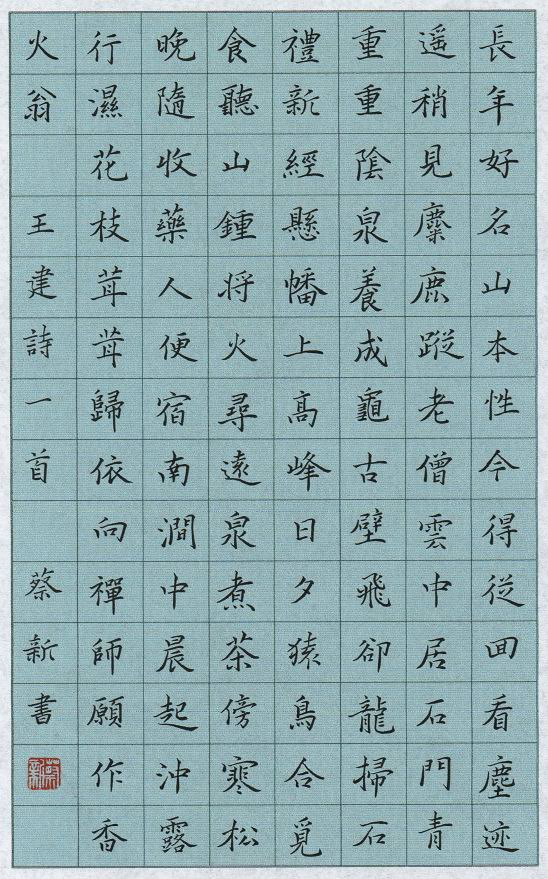 長年好名山本性今得從回看塵迹
遥稍見麋鹿蹤老僧雲中居石門青
重重陰泉養成龜古壁飛卻龍掃石
禮新經懸幡上高峰日夕猿鳥合覓
食聽山鍾將火尋遠泉煮茶傍寒松
晚隨收藥人便宿南澗中晨起沖露
行濕花枝茸茸歸依向禪師願作香
火翁 王建詩一首 蔡新書